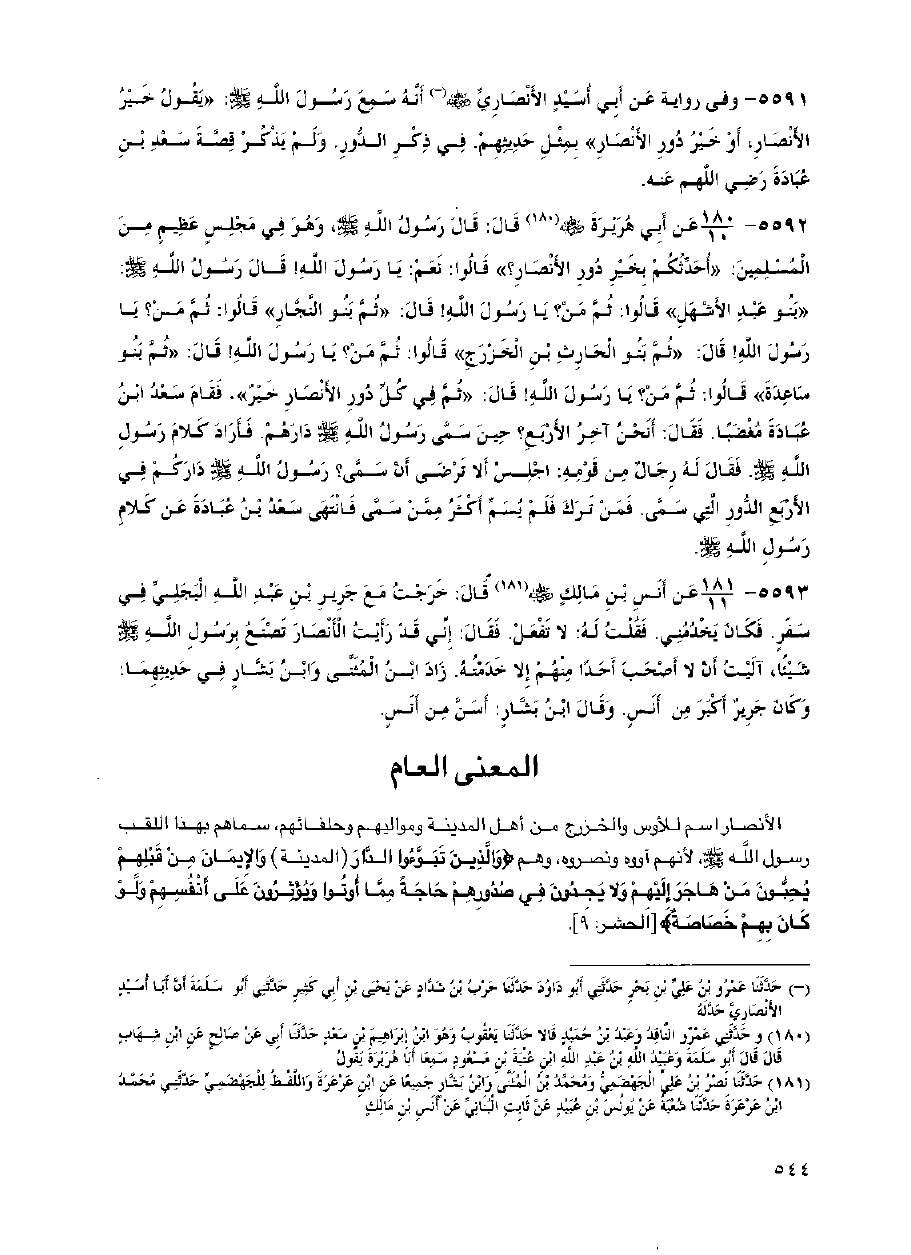 ٥٥٩١- وفى رواية عن أَبِي أُسَيْدٍ الأَنْصَارِيِّ ﷺ(-) أَنَّهُ سَمِعَ رَسُولَ اللَّهِ ﷺ: «يَقُولُ خَيْرُ
الأَنْصَارِ، أَوْ خَيْرُ دُورِ الأَنْصَارِ» بِمِثْلِ حَدِيثِهِمْ. فِي ذِكْرِ الدُّورِ. وَلَمْ يَذْكُرْ قِصَّةَ سَعْدِ بْنِ
عُبَادَةَ رَضِي اللَّهم عَنه.
٥٥٩٢- ١٨٠/١٠ عَن أَبِي هُرَيْرَةَ (١٨٠) قَالَ: قَالَ رَسُولُ اللَّهِ ﷺ، وَهُوَ فِي مَجْلِسٍ عَظِيمٍ مِنَ
الْمُسْلِمِينَ: «أُحَدِّثُكُمْ بِخَيْرِ دُورِ الأَنْصَارِ؟» قَالُوا: نَعَمْ: يَا رَسُولَ اللَّهِ! قَالَ رَسُولُ اللَّهِ ﷺ:
«بَنُو عَبْدِ الأَشْهَلِ» قَالُوا: ثُمَّ مَنْ؟ يَا رَسُولَ اللَّهِ! قَالَ: «ثُمَّ بَنُو النَّجَّارِ» قَالُوا: ثُمَّ مَنْ؟ يَا
رَسُولَ اللَّهِ! قَالَ: «ثُمَّ بَنُو الْحَارِثِ بْنِ الْخَزْرَجِ» قَالُوا: ثُمَّ مَنْ؟ يَا رَسُولَ اللَّهِ! قَالَ: «ثُمَّ بَنُو
سَاعِدَةَ» قَالُوا: ثُمَّ مَنْ؟ يَا رَسُولَ اللَّهِ! قَالَ: «ثُمَّ فِي كُلِّ دُورِ الأَنْصَارِ خَيْرٌ». فَقَامَ سَعْدُ ابْنُ
عُبَادَةَ مُغْضَبًا. فَقَالَ: أَنَحْنُ آخِرُ الأَرْبَعِ؟ حِينَ سَمَّى رَسُولُ اللَّهِ ﷺ دَارَهُمْ. فَأَرَادَ كَلامَ رَسُولِ
اللَّهِ ﷺ. فَقَالَ لَهُ رِجَالٌ مِن قَوْمِهِ: اجْلِسْ أَلا تَرْضَى أَنْ سَمَّى؟ رَسُولُ اللَّهِ ﷺ دَارَكُمْ فِي
الأَرْبَعِ الدُّورِ الَّتِي سَمَّى. فَمَنْ تَرَكَ فَلَمْ يُسَمِّ أَكْثَرُ مِمَّنْ سَمَّى فَانْتَهَى سَعْدُ بْنُ عُبَادَةَ عَن كَلامِ
رَسُولِ اللَّهِ ﷺ.
٥٥٩٣- ١٨١/١١ عَن أَنَسِ بْنِ مَالِكٍ (١٨١) قَالَ: خَرَجْتُ مَعَ جَرِيرِ بْنِ عَبْدِ اللَّهِ الْبَجَلِيِّ فِي
سَفَرٍ. فَكَانَ يَخْدُمُنِي. فَقُلْتُ لَهُ: لا تَفْعَلْ. فَقَالَ: إِنِّي قَدْ رَأَيْتُ الْأَنْصَارَ تَصْنَعُ بِرَسُولِ اللَّهِ ﷺ
شَيْئًا، آلَيْتُ أَنْ لا أَصْحَبَ أَحَدًا مِنْهُمْ إِلا خَدَمْتُهُ. زَادَ ابْنُ الْمُثَنَّى وَابْنُ بَشَّارٍ فِي حَدِيثِهِمَا:
وَكَانَ جَرِيرٌ أَكْبَرَ مِن أَنَسٍ. وَقَالَ ابْنُ بَشَّارٍ: أَسَنَّ مِن أَنَسٍ.
المعنى العام
الأنصار اسم للأوس والخزرج من أهل المدينة ومواليهم وحلفائهم، سماهم بهذا اللقب
رسول اللَّه ﷺ، لأنهم آووه ونصروه، وهم ﴿وَالَّذِينَ تَبَوَّءُوا الدَّارَ (المدينة) وَالإِيمَانَ مِنْ قَبْلِهِمْ
يُحِبُّونَ مَنْ هَاجَرَ إِلَيْهِمْ وَلا يَجِدُونَ فِي صُدُورِهِمْ حَاجَةً مِمَّا أُوتُوا وَيُؤْثِرُونَ عَلَى أَنْفُسِهِمْ وَلَوْ
كَانَ بِهِمْ خَصَاصَةٌ﴾ [الحشر: ٩].
(-) حَدَّثَنَا عَمْرُو بْنُ عَلِيِّ بْنِ بَحْرٍ حَدَّثَنِي أَبُو دَاوُدَ حَدَّثَنَا حَرْبُ بْنُ شَدَّادٍ عَنْ يَحْيَى بْنِ أَبِي كَثِيرٍ حَدَّثَنِي أَبُو سَلَمَةَ أَنَّ أَبَا أُسَيْدٍ
الأَنْصَارِيَّ حَدَّثَهُ
(١٨٠) و حَدَّثَنِي عَمْرٌو النَّاقِدُ وَعَبْدُ بْنُ حُمَيْدٍ قَالا حَدَّثَنَا يَعْقُوبُ وَهُوَ ابْنُ إِبْرَاهِيمَ بْنِ سَعْدٍ حَدَّثَنَا أَبِي عَنْ صَالِحٍ عَنِ ابْنِ شِهَابٍ
قَالَ قَالَ أَبُو سَلَمَةَ وَعُبَيْدُ اللَّهِ بْنُ عَبْدِ اللَّهِ ابْنِ عُتْبَةَ بْنِ مَسْعُودٍ سَمِعَا أَبَا هُرَيْرَةَ يَقُولُ
(١٨١) حَدَّثَنَا نَصْرُ بْنُ عَلِيٍّ الْجَهْضَمِيُّ وَمُحَمَّدُ بْنُ الْمُثَنَّى وَابْنُ بَشَّارٍ جَمِيعًا عَنِ ابْنِ عَرْعَرَةَ وَاللَّفْظُ لِلْجَهْضَمِيِّ حَدَّثَنِي مُحَمَّدُ
ابْنُ عَرْعَرَةَ حَدَّثَنَا شُعْبَةُ عَنْ يُونُسَ بْنِ عُبَيْدٍ عَنْ ثَابِتٍ الْبُنَانِيِّ عَنْ أَنَسِ بْنِ مَالِكٍ
٥٤٤